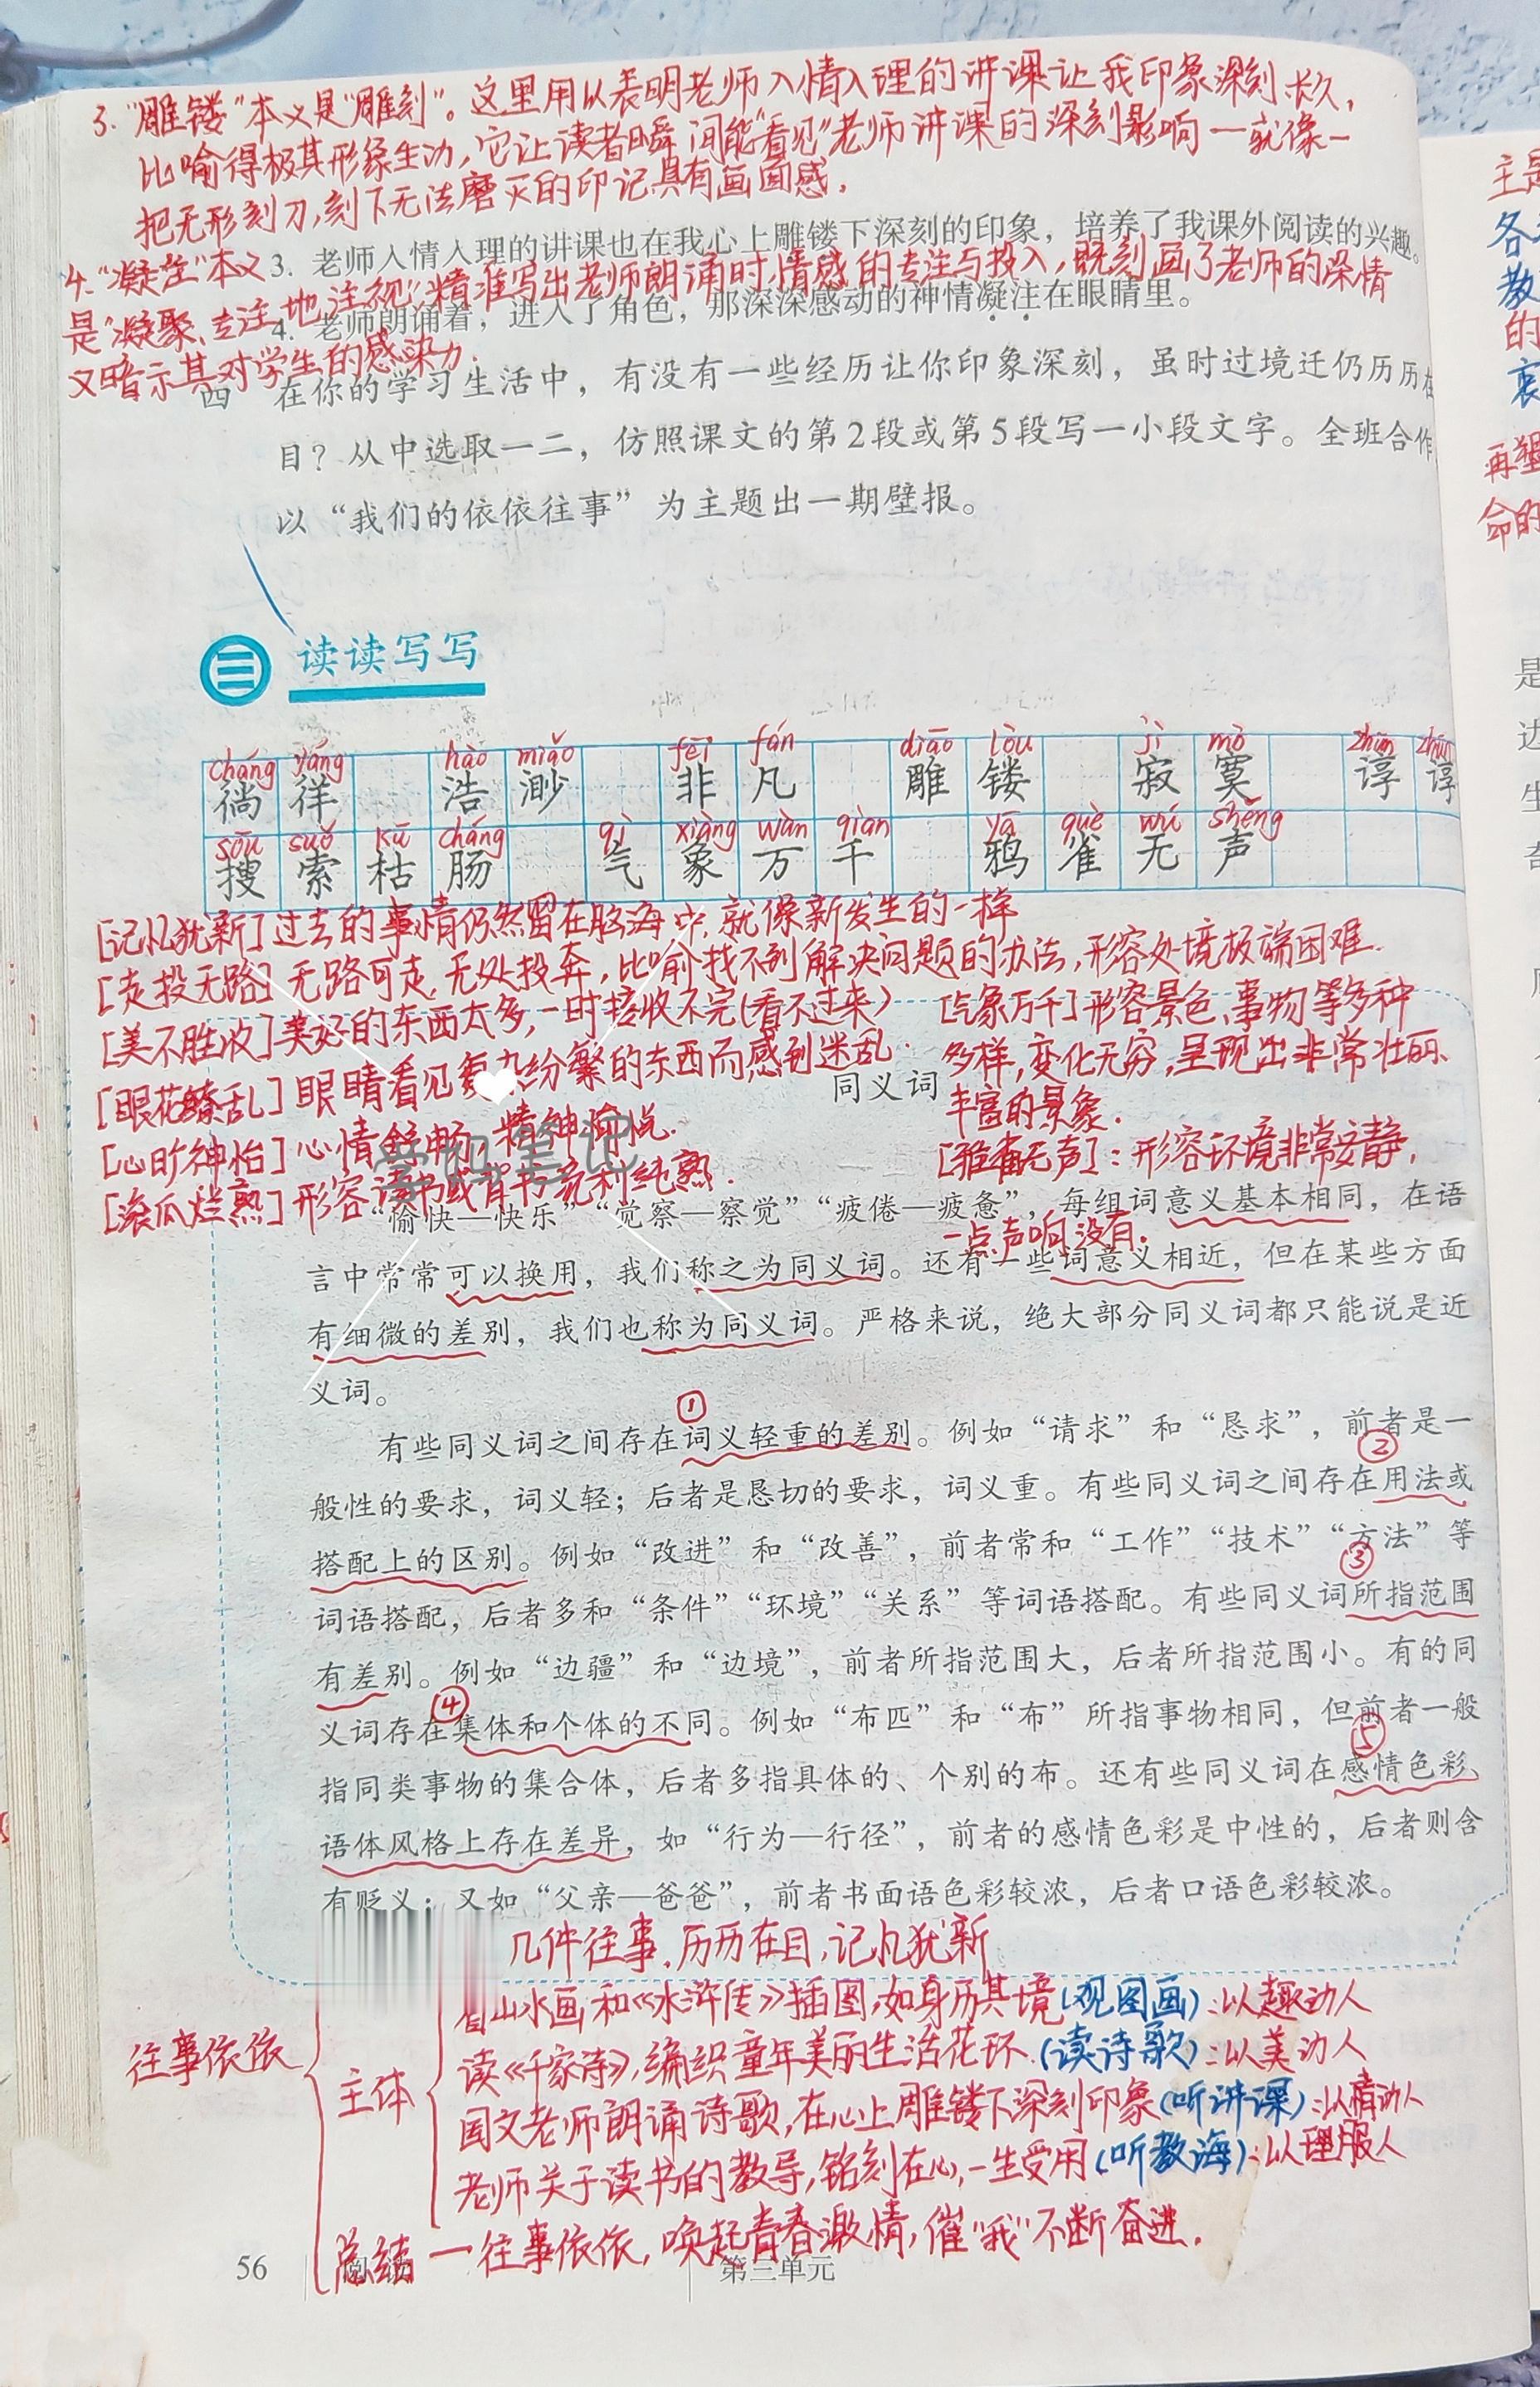 3. “雕镂”本义是“雕刻”。这里用以表明老师入情入理的讲课让我印象深刻长久，
比喻得极其形象生动，它让读者瞬间能“看见”老师讲课的深刻影响一就像一
把无形刻刀，刻下无法磨灭的印记具有画面感。
3. 老师入情入理的讲课也在我心上雕镂下深刻的印象，培养了我课外阅读的兴趣。
4. “凝注”本义
是“凝聚、专注地注视”，精准写出老师朗诵时情感的专注与投入，既刻画了老师的深情
又暗示其对学生的感染力.
4. 老师朗诵着，进入了角色，那深深感动的神情凝注在眼睛里。
四 在你的学习生活中，有没有一些经历让你印象深刻，虽时过境迁仍历历在
目？从中选取一二，仿照课文的第2段或第5段写一小段文字。全班合作
以“我们的依依往事”为主题出一期壁报。
读读写写
cháng yáng hào miǎo fēi fán diāo lòu jì mò zhūn zhūn
徜徉 浩渺 非凡 雕镂 寂寞 谆谆
sōu suǒ kū cháng qì xiàng wàn qiān yā què wú shēng
搜索枯肠 气象万千 鸦雀无声
[记忆犹新]过去的事情仍然留在脑海中，就像新发生的一样
[走投无路]无路可走，无处投奔，比喻找不到解决问题的办法，形容处境极端困难.
[美不胜收]美好的东西太多，一时接收不完（看不过来）
[眼花缭乱]眼睛看见复杂纷繁的东西而感到迷乱.
[心旷神怡]心情舒畅，精神愉悦.
[滚瓜烂熟]形容读书或背书流利纯熟.
[气象万千]形容景色、事物等多种
多样，变化无穷，呈现出非常壮丽、
丰富的景象.
[鸦雀无声]：形容环境非常安静，
一点声响没有.
同义词
学妈笔记
“愉快—快乐”“觉察—察觉”“疲倦—疲惫”，每组词意义基本相同，在语
言中常常可以换用，我们称之为同义词。还有一些词意义相近，但在某些方面
有细微的差别，我们也称为同义词。严格来说，绝大部分同义词都只能说是近
义词。
①
有些同义词之间存在词义轻重的差别。例如“请求”和“恳求”，前者是一
②
般性的要求，词义轻；后者是恳切的要求，词义重。有些同义词之间存在用法或
搭配上的区别。例如“改进”和“改善”，前者常和“工作”“技术”“方法”等
③
词语搭配，后者多和“条件”“环境”“关系”等词语搭配。有些同义词所指范围
有差别。例如“边疆”和“边境”，前者所指范围大，后者所指范围小。有的同
④
义词存在集体和个体的不同。例如“布匹”和“布”所指事物相同，但前者一般
⑤
指同类事物的集合体，后者多指具体的、个别的布。还有些同义词在感情色彩、
语体风格上存在差异，如“行为—行径”，前者的感情色彩是中性的，后者则含
有贬义；又如“父亲—爸爸”，前者书面语色彩较浓，后者口语色彩较浓。
几件往事，历历在目，记忆犹新
往事依依
主体
看山水画和《水浒传》插图，如身历其境（观图画）：以趣动人
读《千家诗》，编织童年美丽生活花环.（读诗歌）：以美动人
国文老师朗诵诗歌，在心上雕镂下深刻印象（听讲课）：以情动人
老师关于读书的教导，铭刻在心，一生受用（听教诲）：以理服人
总结一往事依依，唤起青春激情，催“我”不断奋进.
56
第三单元
主题
各
教
的
哀
再塑
命的
是
边
生